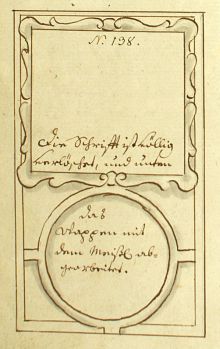 N. 138.
die Schrifft ist völlig
verlöschet, und unten
das
Wappen mit
dem Meißl ab-
gearbeitet.